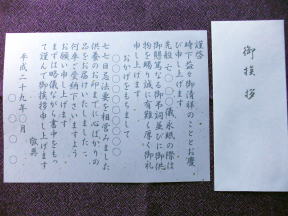 謹啓
時下益々御清祥のこととお慶
び申し上げます
先般 亡〇〇〇儀永眠の際は
御懇篤なる御弔詞並びに御供
物を賜り誠に有難く厚く御礼
申し上げます
おかげをもちまして
〇〇〇〇〇〇〇〇〇
七七日忌法要を相営みました
供養のおしるしまでに心ばかりの
品をお届けいたしました
何卒ご受納下さいますよう
お願い申し上げます
まずは略儀ながら書中をもっ
て謹んで御挨拶申し上げます
敬具
平成二十九年〇月
〇〇〇〇
御挨拶